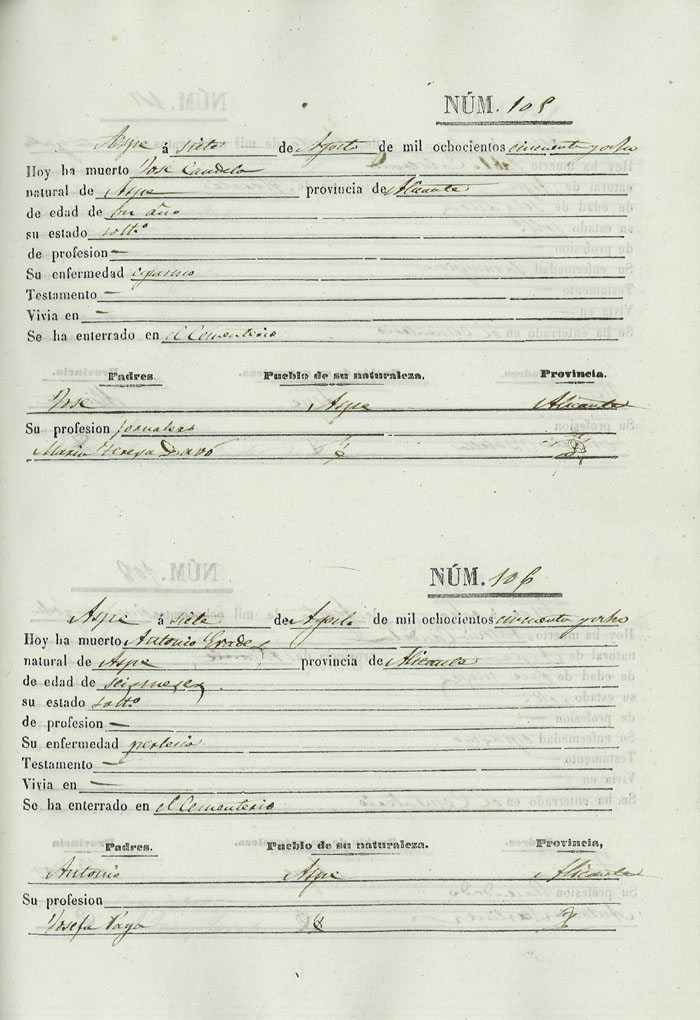 NÚM. 105
Aspe á siete de Agosto de mil ochocientos cincuenta y ocho
Hoy ha muerto Jose Candela
natural de Aspe provincia de Alicante
de edad de un año
su estado solt.º
de profesion —
Su enfermedad espasmo
Testamento —
Vivia en —
Se ha enterrado en el Cementerio
Padres. Pueblo de su naturaleza. Provincia.
Jose Aspe Alicante
Su profesion jornalero
Maria Teresa Davó
NÚM. 106
Aspe á siete de Agosto de mil ochocientos cincuenta y ocho
Hoy ha muerto Antonio
natural de Aspe provincia de Alicante
de edad de seis meses
su estado solt.º
de profesion —
Su enfermedad perlesia
Testamento —
Vivia en —
Se ha enterrado en el Cementerio
Padres. Pueblo de su naturaleza. Provincia,
Antonio Aspe Alicante
Su profesion
Josefa Paya